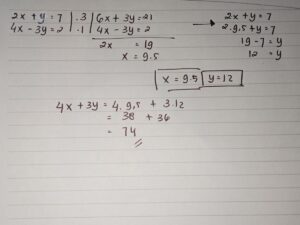 2x + y = 7 | .3 | 6x + 3y = 21
4x - 3y = 2 | .1 | 4x - 3y = 2
2x = 19
x = 9.5
→ 2x + y = 7
2.9,5 + y = 7
19 - 7 = y
12 = y
x = 9.5 y = 12
4x + 3y = 4.9,5 + 3.12
= 38 + 36
= 74